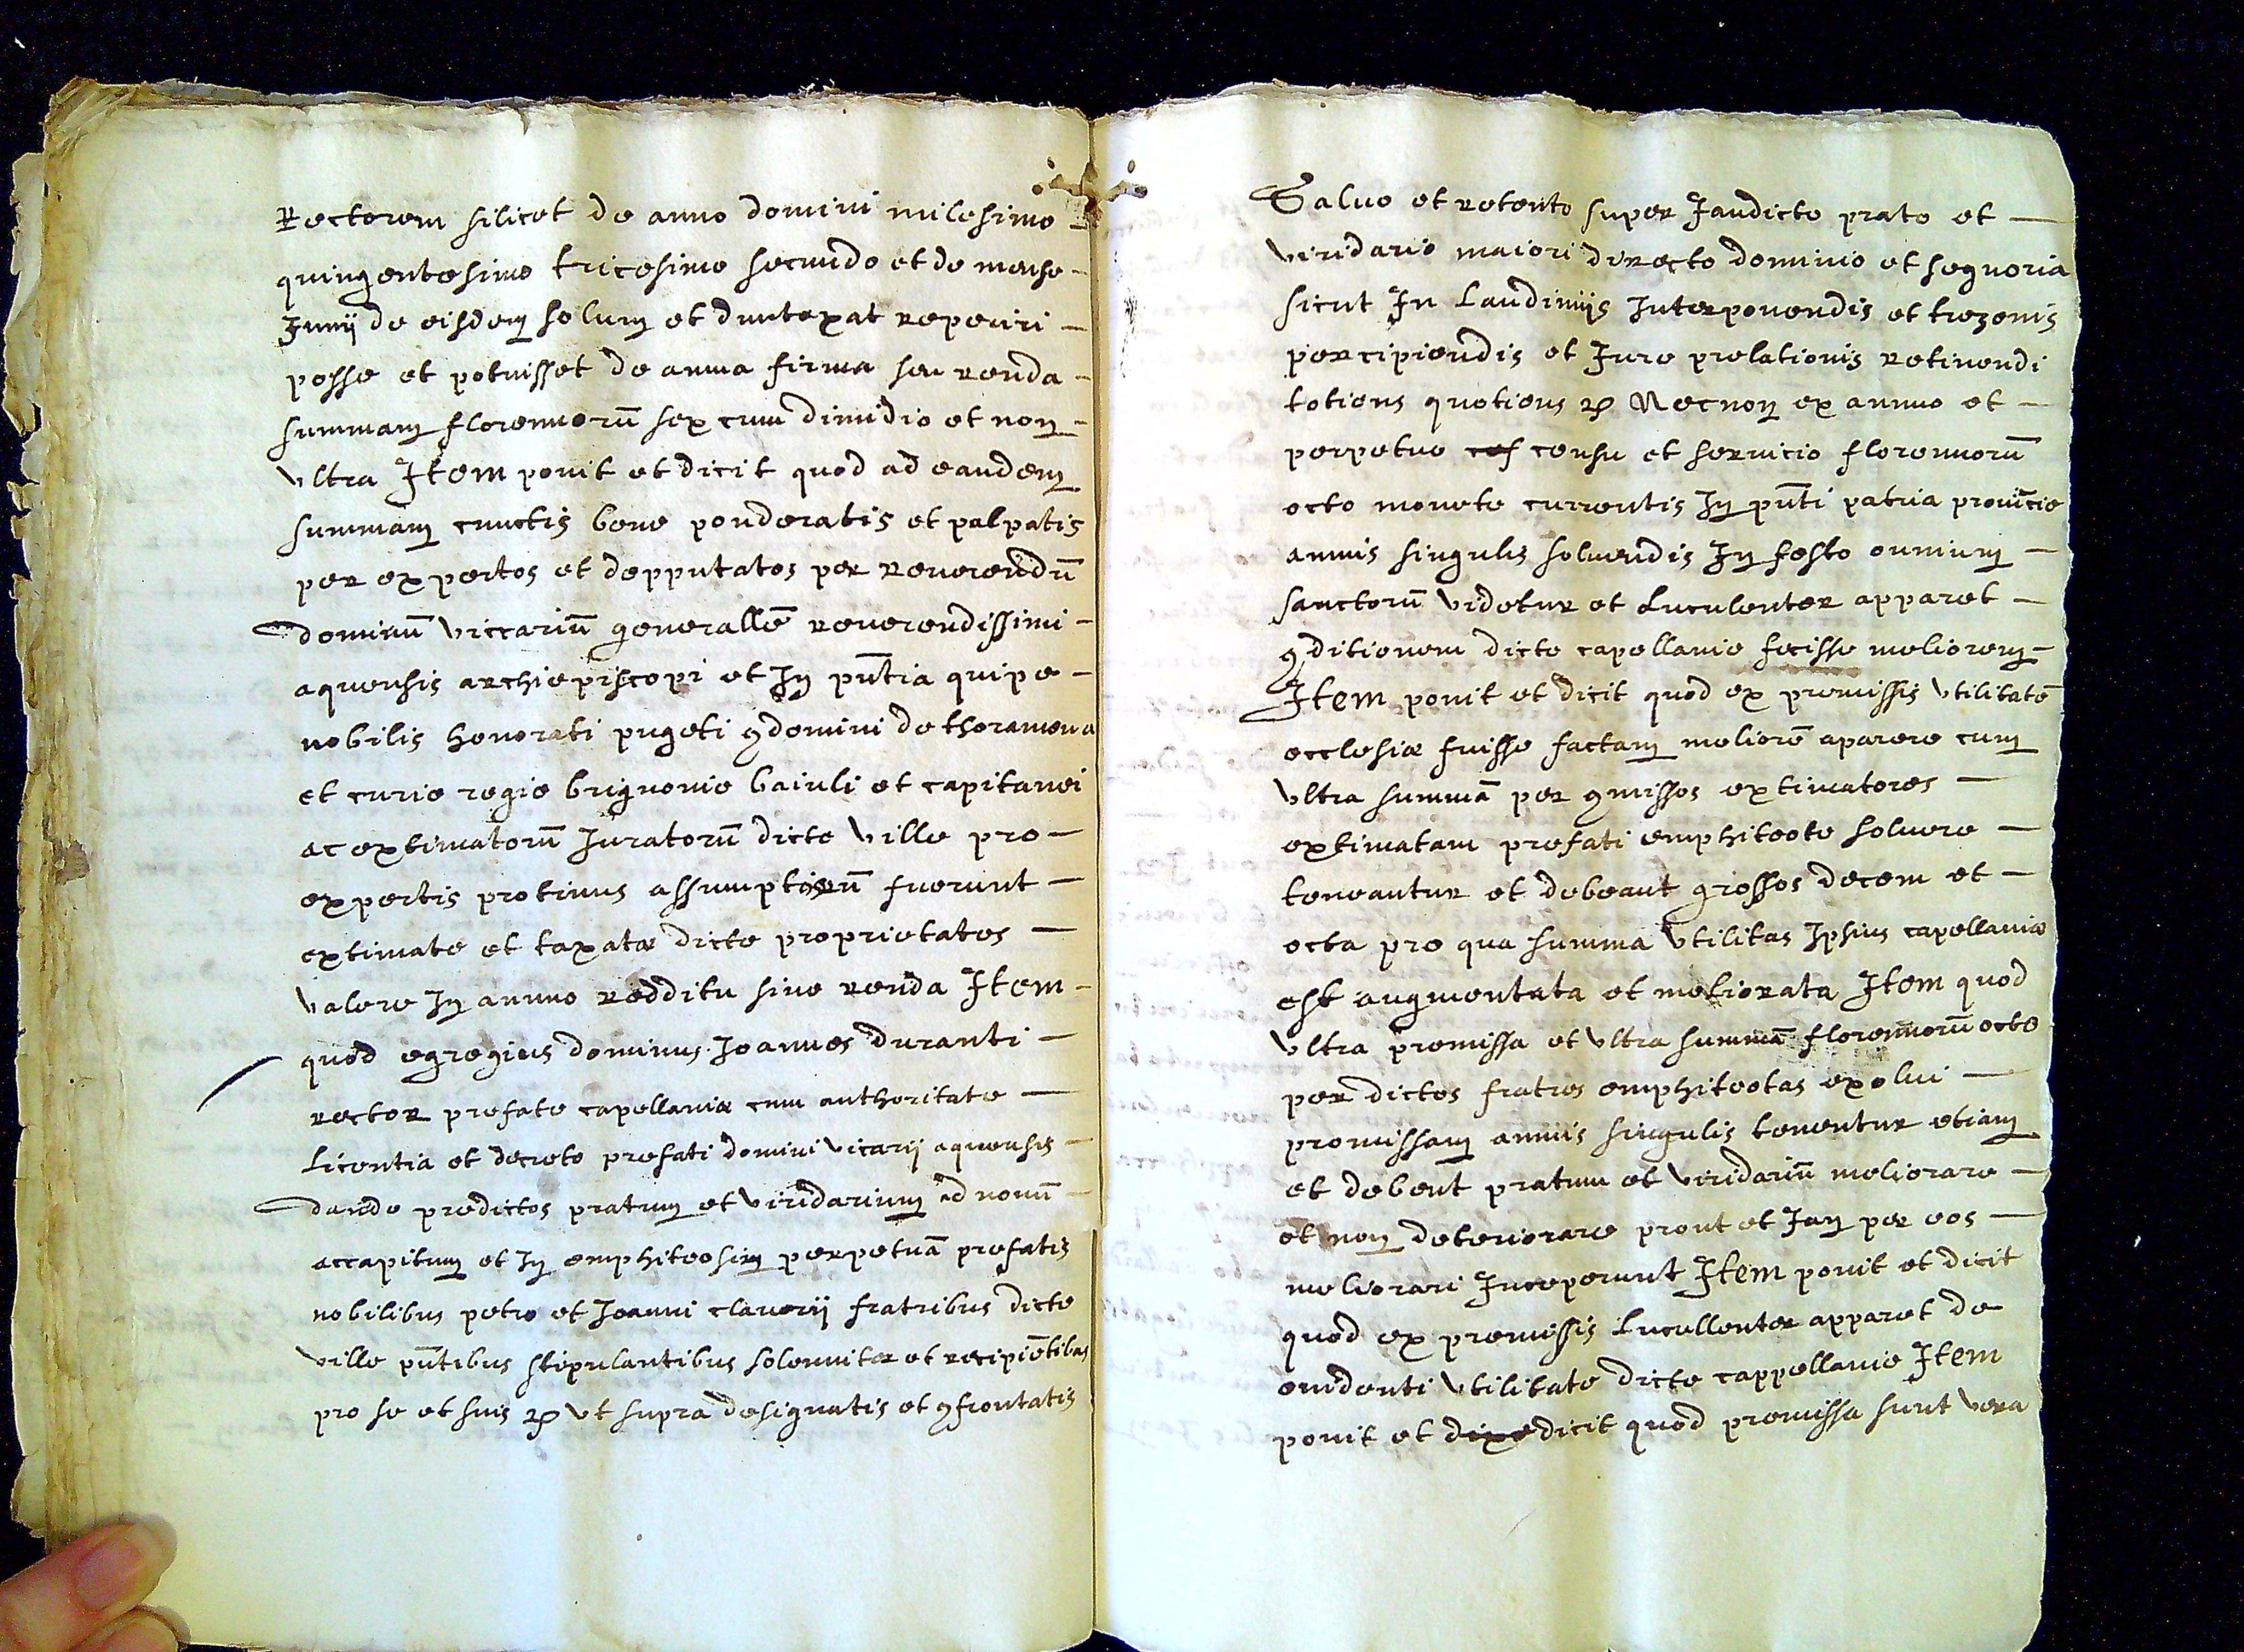 Rectorem silicet de anno domini milesimo
quingentesimo tricesimo secundo et de mense -
Junij de eisdem solum et duntaxat reperiri -
posse et potuisset de annua firma seu renda -
summam florenorū sex cum dimidio et non -
vltra Item ponit et dicit quod ad eandem
summam cunctis bene ponderatis et palpatis
per expertos et depputatos per reuerendū
dominū viccariū generallē reuerendissimi -
aquensis archiepiscopi et In pn̄tia quipe -
nobilis honorati pugeti 9domini de thoramena
et curie regie brignonie baiuli et capitanei
ac extimatorū Juratorū dicte ville pro -
expertis protinus assumptorū fuerunt -
extimate et taxatæ dicte proprietates -
valere In annuo redditu siue renda Item -
quod egregius dominus Joannes duranti -
rector prefate capellaniæ cum authoritate -
licentia et decreto prefati domini vicarij aquensis -
dando predictos pratum et viridarium ad nouū -
accapitum et In emphiteosim perpetuā prefatis
nobilibus petro et Joanni clauerij fratribus dicte
ville pn̄tibus stipulantibus solemniter et recipiētibus
pro se et suis &c vt supra designatis et 9frontatis
Saluo et retento super Jandicto prato et -
viridario maiori directo dominio et segnoria
sicut In laudimijs Interponendis et trezenis
percipiendis et Jure prelationis retinendi
totiens quotiens &c Necnon ex annuo et -
perpetuo ces censu et seruicio florennorū
octo monete currentis In pn̄ti patria prouīcie
annis singulis soluendis In festo omnium -
sanctorū videtur et luculenter apparet -
9ditionem dicte capellanie fecisse meliorem -
Item ponit et dicit quod ex premissis vtilitatē
ecclesiæ fuisse factam meliorē aparere cum
vltra summā per 9missos extimatores -
extimatam prefati emphiteote soluere -
teneantur et debeant grossos decem et -
octa pro qua summa vtilitas Ipsius capellaniæ
est augmentata et meliorata Item quod
vltra premissa et vltra summā florennorū octo
per dictos fratres emphiteotas exolui -
promissam annis singulis tenentur etiam
et debent pratum et viridariū meliorare -
et non deteriorare prout et Jam per eos -
meliorari Inceperunt Item ponit et dicit
quod ex premissis lucullenter apparet de
euidenti vtilitate dicte cappellanie Item
ponit et dixe dicit quod premissa sunt vera